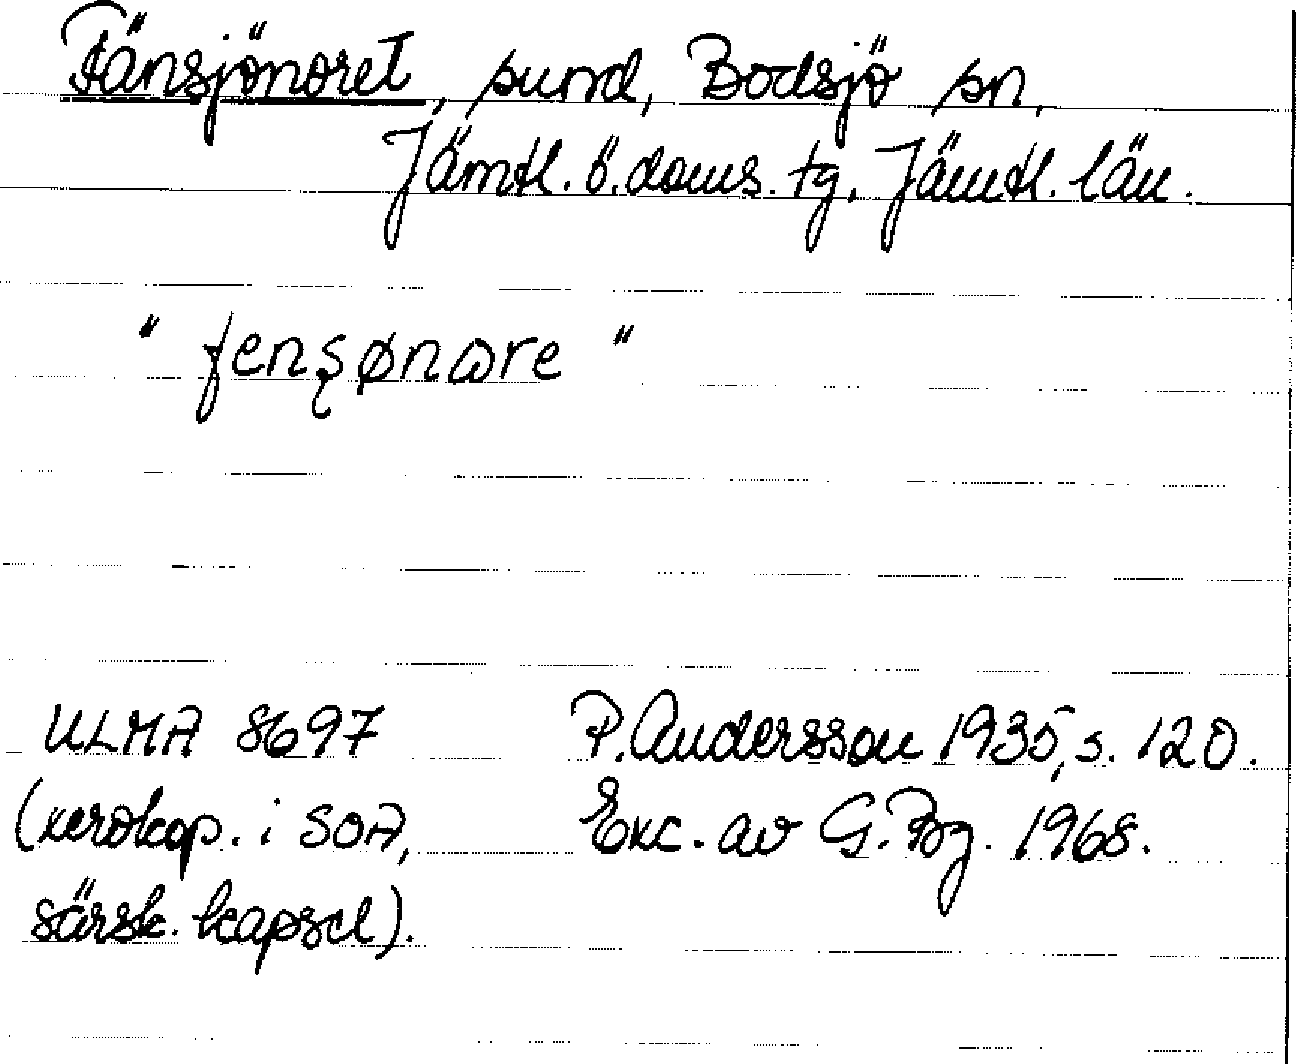 Fänsjönoret, sund, Bodsjö sn,
Jämtl. ö. doms. tg, Jämtl. län.
" fenşønωre "
ULMA 8697 P. Andersson 1935, s. 120.
(xerokop. i SOA, Exc. av G. Bg. 1968.
särsk. kapsel).